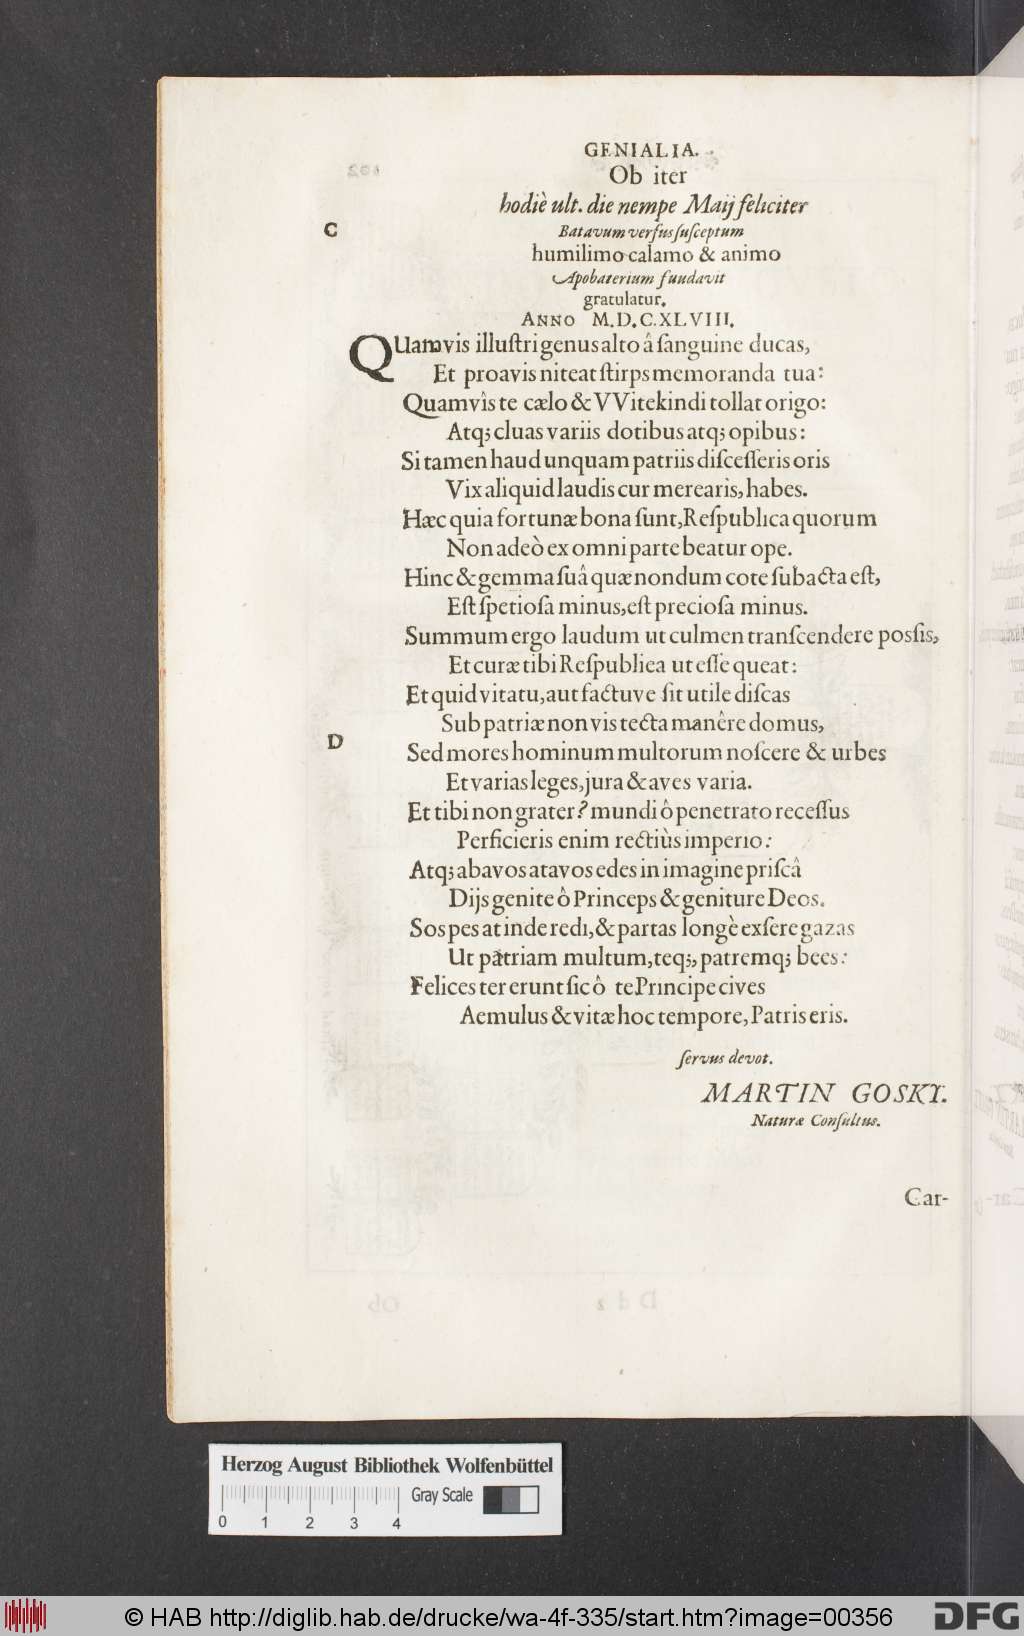 GENIALIA.
Ob iter
hodiè ult. die nempe Maij feliciter
C
Batavum versus susceptum
humilimo calamo & animo
Apobaterium fuudavit
gratulatur.
ANNO M.D.C.XLVIII.
QUamvis illustri genus alto â sanguine ducas,
Et proavis niteat stirps memoranda tua:
Quamvîs te cælo & VVitekindi tollat origo:
Atq; cluas variis dotibus atq; opibus:
Si tamen haud unquam patriis discesseris oris
Vix aliquid laudis cur merearis, habes.
Hæc quia fortunæ bona sunt, Respublica quorum
Non adeò ex omni parte beatur ope.
Hinc & gemma suâ quæ nondum cote subacta est,
Est spetiosa minus, est preciosa minus.
Summum ergo laudum ut culmen transcendere possis,
Et curæ tibi Respubliea ut esse queat:
Et quid vitatu, aut factuve sit utile discas
Sub patriæ non vis tecta manêre domus,
D
Sed mores hominum multorum noscere & urbes
Et varias leges, jura & aves varia.
Et tibi non grater? mundi ô penetrato recessus
Perficieris enim rectiùs imperio:
Atq; abavos atavos edes in imagine priscâ
Dijs genite ô Princeps & geniture Deos.
Sospes at inde redi, & partas longè exsere gazas
Ut patriam multum, teq;, patremq; bees:
Felices ter erunt sic ô te Principe cives
Aemulus & vitæ hoc tempore, Patris eris.
servus devot.
MARTIN GOSKI.
Naturæ Consultus.
Car-
Herzog August Bibliothek Wolfenbüttel
Gray Scale
0 1 2 3 4
© HAB http://diglib.hab.de/drucke/wa-4f-335/start.htm?image=00356
DFG